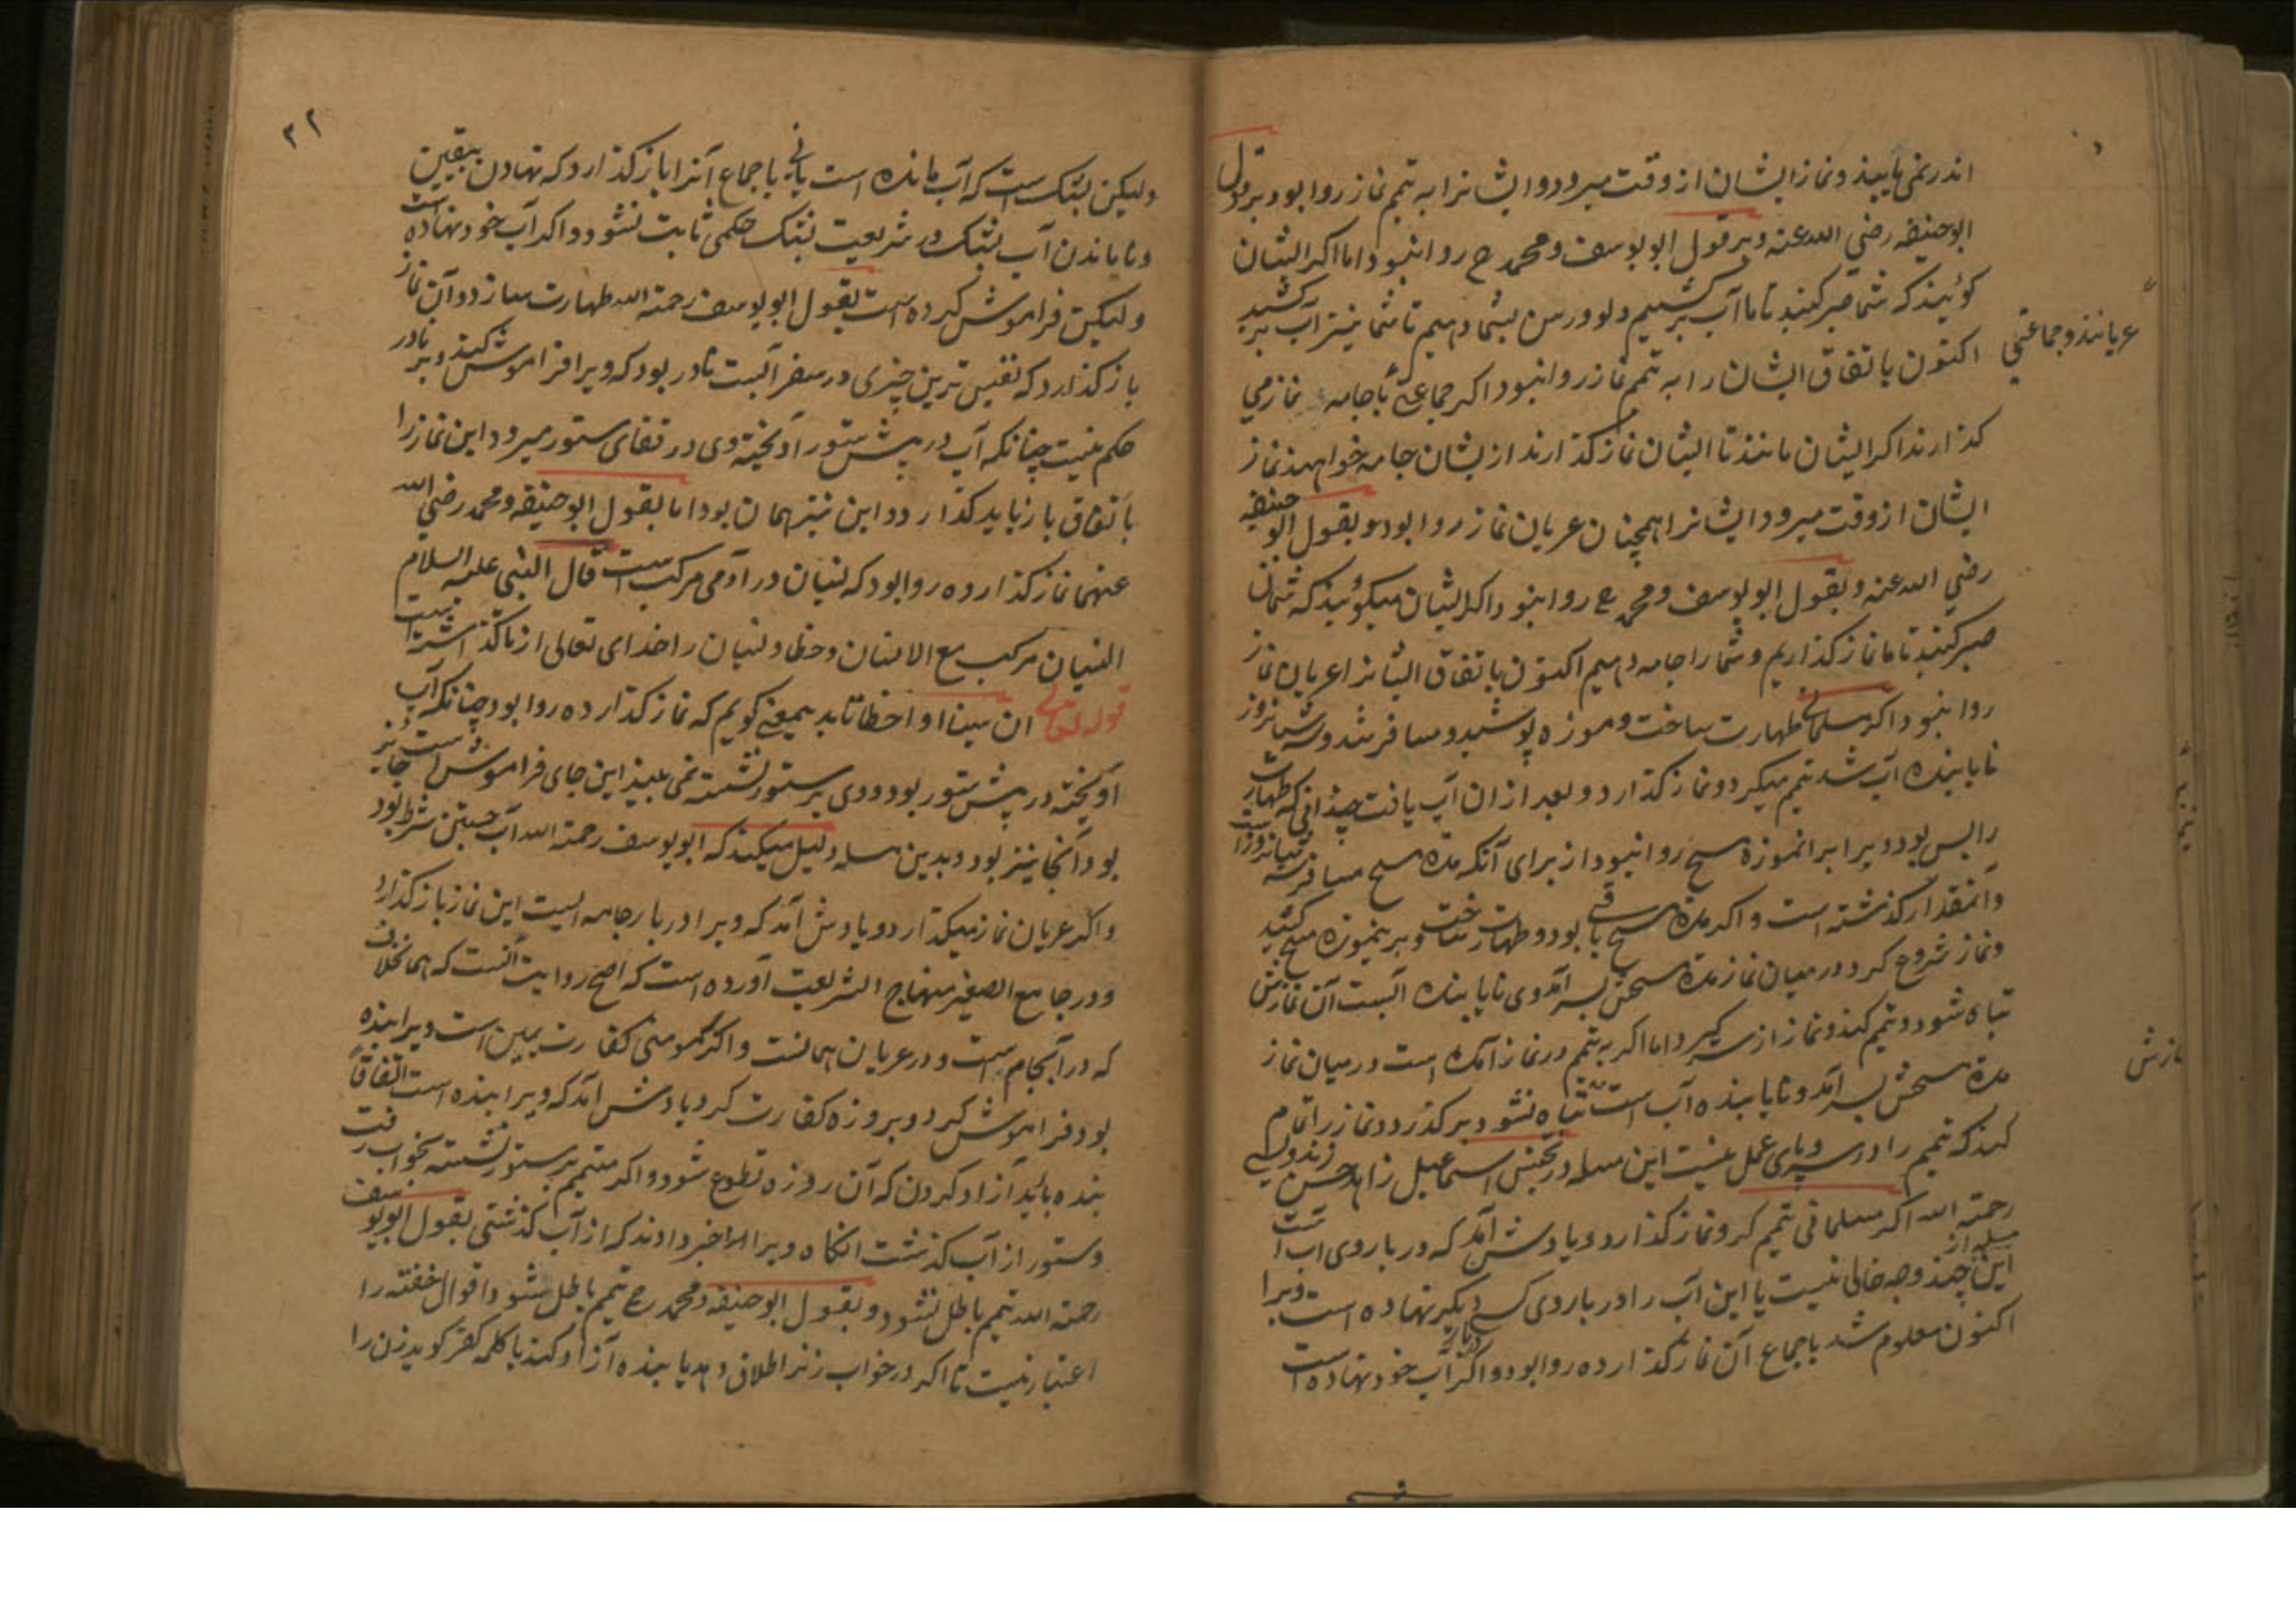 اندر نمی‌یابند و نماز ایشان از وقت میرود و ایشانرا به تیمم نماز روا بود بر قول
ابوحنیفه رضی الله عنه و بر قول ابویوسف و محمد رح روا نبود اما اگر ایشان
کویند که شما صبر کنید تا ما آب بر کشیم و دلو و رسن بشما دهیم تا شما نیز آب بر کشید
اکنون باتفاق ایشان را به تیمم نماز روا نبود اکر جماعتی با جامه نماز می
عریانند و جماعتی
کذارند اکر ایشان مانند تا ایشان نماز کذارند از یشان جامه خواهند نماز
ایشان از وقت میرود ایشانرا همچنان عریان نماز روا بود و بقول ابو حنیفه
رضی الله عنه و بقول ابویوسف و محمد رح روا نبود اکر ایشان میکویند که شمایان
صبر کنید تا ما نماز کذاریم و شما را جامه دهیم اکنون باتفاق ایشانرا عریان نماز
روا نبود اکر مسلمانی طهارت ساخت و موزه پوشید و مسافر شد و سه شبانروز
نایابنده آب شد تیمم میکرد و نماز کذارد و بعد ازان آب یافت چندانی که طهارت
را بس بود ویرا بر انموزه مسح روا نبود از برای آنکه مدة مسح مسافر سه شبانروز است
و آنمقدار کذشته است و اکر مدة مسح باقی بود و طهارت ساخت و بر ینموزه مسح کشید
و نماز شروع کرد در میان نماز مدة مسحش بسر آمد وی نایابنده آبست آن نمازش
تباه شود و تیمم کند و نماز از سر کیرد اما اکر به تیمم در نماز آمده است در میان نماز
ازش
مدة مسحش بسر آمد و نایابنده آب است تباه نشود و بر کذرد و نماز را تمام
کند که تیمم را در سر و پای عمل نیست این مسله در تجنیس اسماعیل زاهد حسن زندویسی
رحمة الله اکر مسلمانی تیمم کرد و نماز کذارد و یادش آمد که در بار وی اب است
این مسله از چند وجه خالی نیست یا این آب را در بار وی کسی دیکر نهاده است ویرا
اکنون معلوم شد باجماع آن نماز کذارده روا بود و اکر آب خود نهاده است
۳۲
ولیکن بشک است که آب مانده است یا نی باجماع آنرا باز کذارد که نهادن بیقین است
و نا ماندن آب بشک و در شریعت بشک حکمی ثابت نشود و اکر آب خود نهاده
ولیکن فراموش کرده است بقول ابویوسف رحمة الله طهارت سازد و آن نماز
باز کذارد که نفیس ترین چیزی در سفر آبست نادر بود که ویرا فراموش کند و بر نادر
حکم نیست چنانکه آب در پیش ستور آویخته وی در قفای ستور میرود این نماز را
باتفاق باز باید کذارد و این نیز همان بود اما بقول ابوحنیفه و محمد رضی الله
عنهما نماز کذارده روا بود که نسیان در آدمی مرکب است قال النبی علیه السلام
النسیان مرکب مع الانسان و خطا و نسیان را خدای تعالی از ما کذاشته است
قوله تعالی ان نسینا او اخطانا بدینمعنی کویم که نماز کذارده روا بود چنانکه آب
آویخته در پیش ستور بود و وی بر ستور نشسته نمی بیند این جای فراموش است جایز
بود آنجا نیز بود و بدین مسله دلیل میکند که ابویوسف رحمة الله آب جستن شرط بود
و اکر عریان نماز میکذارد و یادش آمد که ویرا در بار جامه ایست این نماز باز کذارد
و در جامع الصغیر منهاج الشریعت آورده است که اصح روایت آنست که همانخلاف
که در آنجا است و در عریان همانست و اکر مومنی کفارت یمین است ویرا بنده
بود فراموش کرد و بروزه کفارت کرد یادش آمد که ویرا بنده است اتفاقا
بنده باید آزاد کردن که آن روزه تطوع شود و اکر متیمم بر ستور نشسته بخواب رفت
و ستور از آب کذشت انکاه ویرا خبر دادند که از آب کذشتی بقول ابویوسف
رحمة الله تیمم باطل نشود و بقول ابوحنیفه و محمد رح تیمم باطل شود و اقوال خفته را
اعتبار نیست تا اکر در خواب زنرا طلاق دهد یا بنده آزاد کند یا کلمه کفر کوید زن را